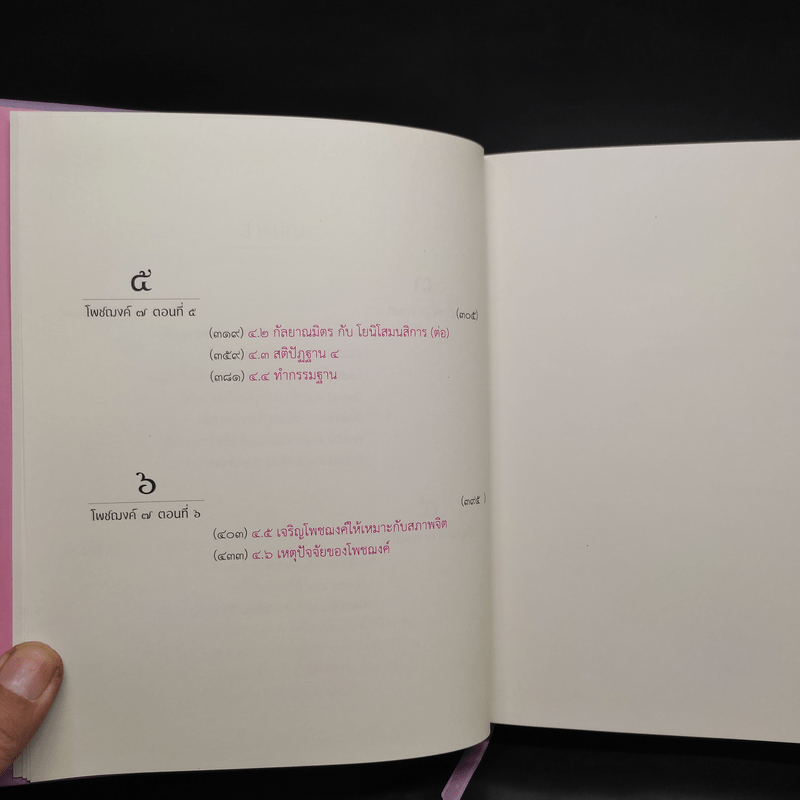 ๕
โพชฌงค์ ๗ ตอนที่ ๕
(๓๐๕)
(๓๑๙) ๔.๒ กัลยาณมิตร กับ โยนิโสมนสิการ (ต่อ)
(๓๕๙) ๔.๓ สติปัฏฐาน ๔
(๓๘๑) ๔.๔ ทำกรรมฐาน
๖
โพชฌงค์ ๗ ตอนที่ ๖
(๓๙๕ )
(๔๐๓) ๔.๕ เจริญโพชฌงค์ให้เหมาะกับสภาพจิต
(๔๓๓) ๔.๖ เหตุปัจจัยของโพชฌงค์